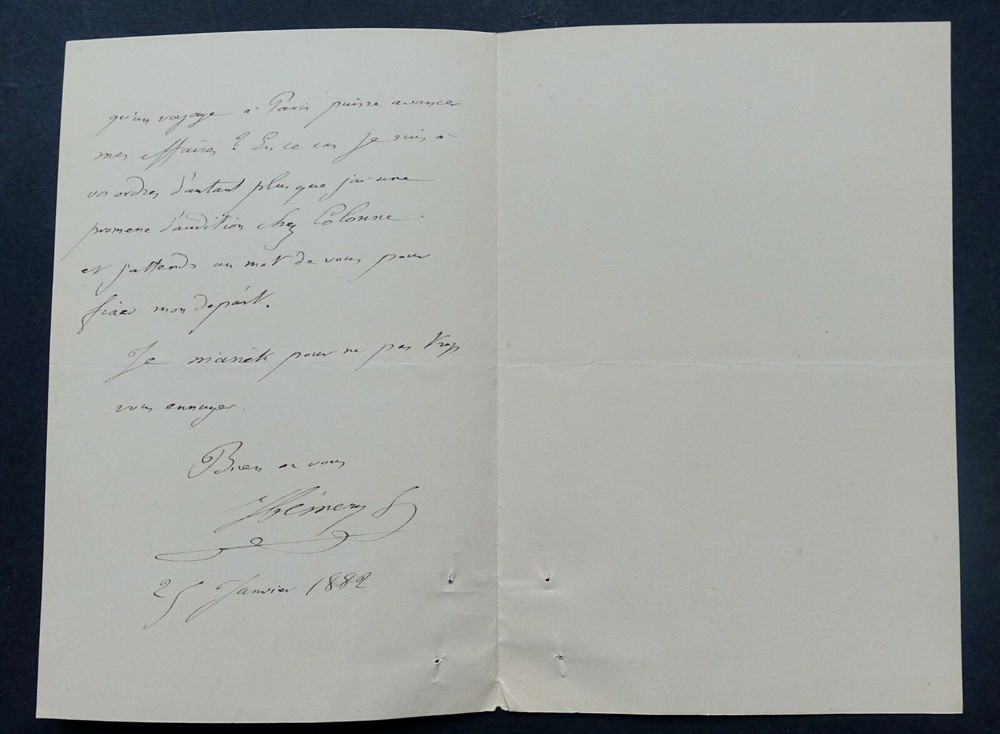 qu'un voyage à Paris puisse avancer
mes affaires ? En ce cas je suis à
vos ordres d'autant plus que j'ai une
promesse d'audition chez Colonne.
et j'attends un mot de vous pour
fixer mon départ.
Je m'arrête pour ne pas trop
vous ennuyer.
Bien à vous
25 Janvier 1882